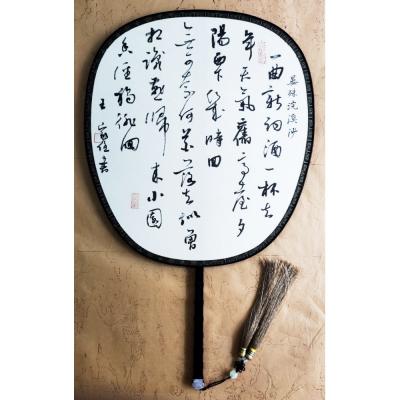 晏殊浣溪沙
一曲新词酒一杯去
年天气旧亭台夕
阳西下几时回
无可奈何花落去似曾
相识燕归来小园
香径独徘徊
王
书